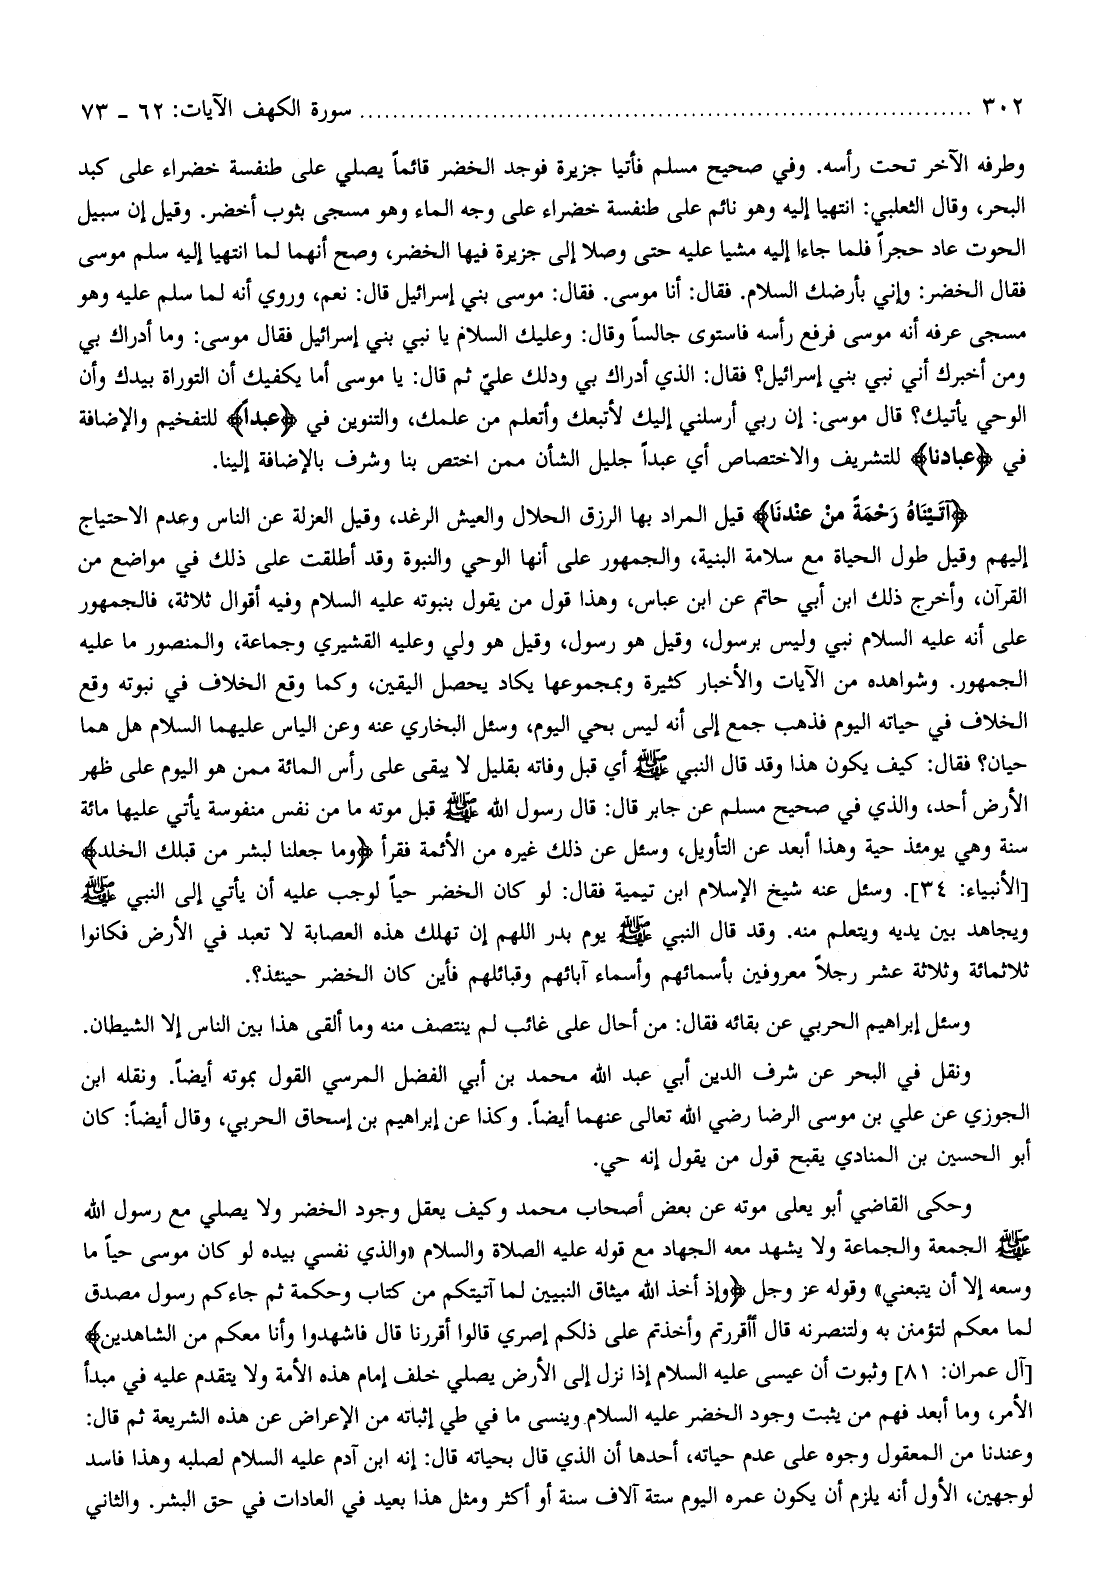 ٣٠٢ ........................................................................ سورة الكهف الآيات: ٦٢ ـ ٧٣
وطرفه الآخر تحت رأسه. وفي صحيح مسلم فأتيا جزيرة فوجد الخضر قائماً يصلي على طنفسة خضراء على كبد
البحر، وقال الثعلبي: انتهيا إليه وهو نائم على طنفسة خضراء على وجه الماء وهو مسجى بثوب أخضر. وقيل إن سبيل
الحوت عاد حجراً فلما جاءا إليه مشيا عليه حتى وصلا إلى جزيرة فيها الخضر، وصح أنهما لما انتهيا إليه سلم موسى
فقال الخضر: وإني بأرضك السلام. فقال: أنا موسى. فقال: موسى بني إسرائيل قال: نعم، وروي أنه لما سلم عليه وهو
مسجى عرفه أنه موسى فرفع رأسه فاستوى جالساً وقال: وعليك السلام يا نبي بني إسرائيل فقال موسى: وما أدراك بي
ومن أخبرك أني نبي بني إسرائيل؟ فقال: الذي أدراك بي ودلك عليّ ثم قال: يا موسى أما يكفيك أن التوراة بيدك وأن
الوحي يأتيك؟ قال موسى: إن ربي أرسلني إليك لأتبعك وأتعلم من علمك، والتنوين في ﴿عبداً﴾ للتفخيم والإضافة
في ﴿عبادنا﴾ للتشريف والاختصاص أي عبداً جليل الشأن ممن اختص بنا وشرف بالإضافة إلينا.
﴿آتَيْنَاهُ رَحْمَةً منْ عنْدنَا﴾ قيل المراد بها الرزق الحلال والعيش الرغد، وقيل العزلة عن الناس وعدم الاحتياج
إليهم وقيل طول الحياة مع سلامة البنية، والجمهور على أنها الوحي والنبوة وقد أطلقت على ذلك في مواضع من
القرآن، وأخرج ذلك ابن أبي حاتم عن ابن عباس، وهذا قول من يقول بنبوته عليه السلام وفيه أقوال ثلاثة، فالجمهور
على أنه عليه السلام نبي وليس برسول، وقيل هو رسول، وقيل هو ولي وعليه القشيري وجماعة، والمنصور ما عليه
الجمهور. وشواهده من الآيات والأخبار كثيرة وبمجموعها يكاد يحصل اليقين، وكما وقع الخلاف في نبوته وقع
الخلاف في حياته اليوم فذهب جمع إلى أنه ليس بحي اليوم، وسئل البخاري عنه وعن الياس عليهما السلام هل هما
حيان؟ فقال: كيف يكون هذا وقد قال النبي ﷺ أي قبل وفاته بقليل لا يبقى على رأس المائة ممن هو اليوم على ظهر
الأرض أحد، والذي في صحيح مسلم عن جابر قال: قال رسول الله ﷺ قبل موته ما من نفس منفوسة يأتي عليها مائة
سنة وهي يومئذ حية وهذا أبعد عن التأويل، وسئل عن ذلك غيره من الأئمة فقرأ ﴿وما جعلنا لبشر من قبلك الخلد﴾
[الأنبياء: ٣٤]. وسئل عنه شيخ الإسلام ابن تيمية فقال: لو كان الخضر حياً لوجب عليه أن يأتي إلى النبي ﷺ
ويجاهد بين يديه ويتعلم منه. وقد قال النبي ﷺ يوم بدر اللهم إن تهلك هذه العصابة لا تعبد في الأرض فكانوا
ثلاثمائة وثلاثة عشر رجلاً معروفين بأسمائهم وأسماء آبائهم وقبائلهم فأين كان الخضر حينئذ؟.
وسئل إبراهيم الحربي عن بقائه فقال: من أحال على غائب لم ينتصف منه وما ألقى هذا بين الناس إلا الشيطان.
ونقل في البحر عن شرف الدين أبي عبد الله محمد بن أبي الفضل المرسي القول بموته أيضاً. ونقله ابن
الجوزي عن علي بن موسى الرضا رضي الله تعالى عنهما أيضاً. وكذا عن إبراهيم بن إسحاق الحربي، وقال أيضاً: كان
أبو الحسين بن المنادي يقبح قول من يقول إنه حي.
وحكى القاضي أبو يعلى موته عن بعض أصحاب محمد وكيف يعقل وجود الخضر ولا يصلي مع رسول الله
ﷺ الجمعة والجماعة ولا يشهد معه الجهاد مع قوله عليه الصلاة والسلام «والذي نفسي بيده لو كان موسى حياً ما
وسعه إلا أن يتبعني» وقوله عز وجل ﴿وإذ أخذ الله ميثاق النبيين لما آتيتكم من كتاب وحكمة ثم جاءكم رسول مصدق
لما معكم لتؤمنن به ولتنصرنه قال أأقررتم وأخذتم على ذلكم إصري قالوا أقررنا قال فاشهدوا وأنا معكم من الشاهدين﴾
[آل عمران: ٨١] وثبوت أن عيسى عليه السلام إذا نزل إلى الأرض يصلي خلف إمام هذه الأمة ولا يتقدم عليه في مبدأ
الأمر، وما أبعد فهم من يثبت وجود الخضر عليه السلام وينسى ما في طي إثباته من الإعراض عن هذه الشريعة ثم قال:
وعندنا من المعقول وجوه على عدم حياته، أحدها أن الذي قال بحياته قال: إنه ابن آدم عليه السلام لصلبه وهذا فاسد
لوجهين، الأول أنه يلزم أن يكون عمره اليوم ستة آلاف سنة أو أكثر ومثل هذا بعيد في العادات في حق البشر. والثاني